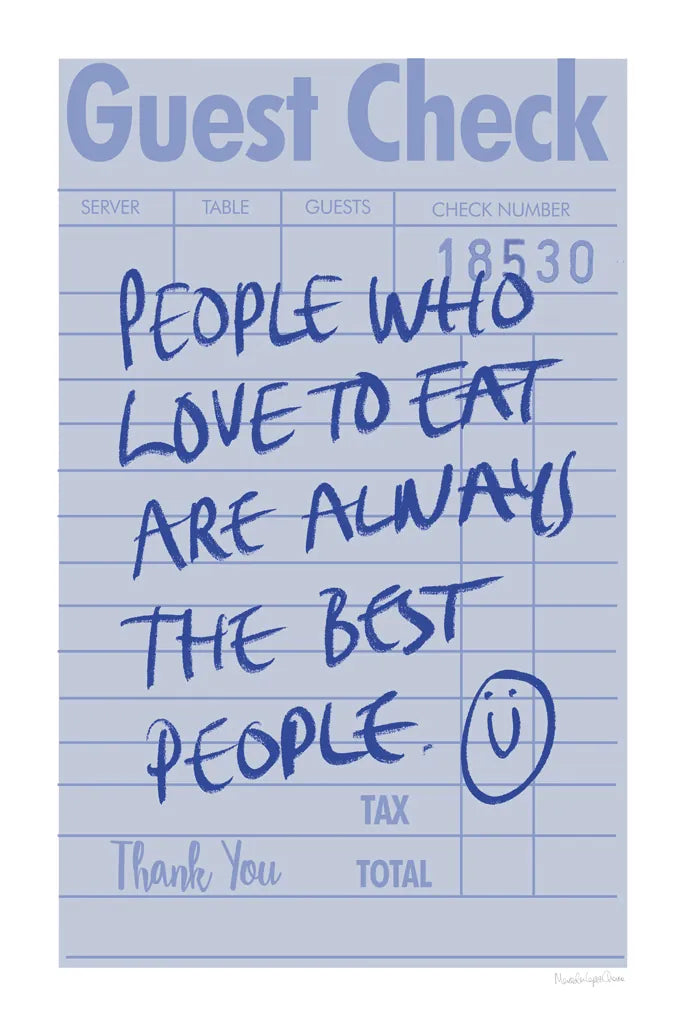 Guest Check
SERVER TABLE GUESTS CHECK NUMBER
18530
PEOPLE WHO
LOVE TO EAT
ARE ALWAYS
THE BEST
PEOPLE.
TAX
Thank You TOTAL